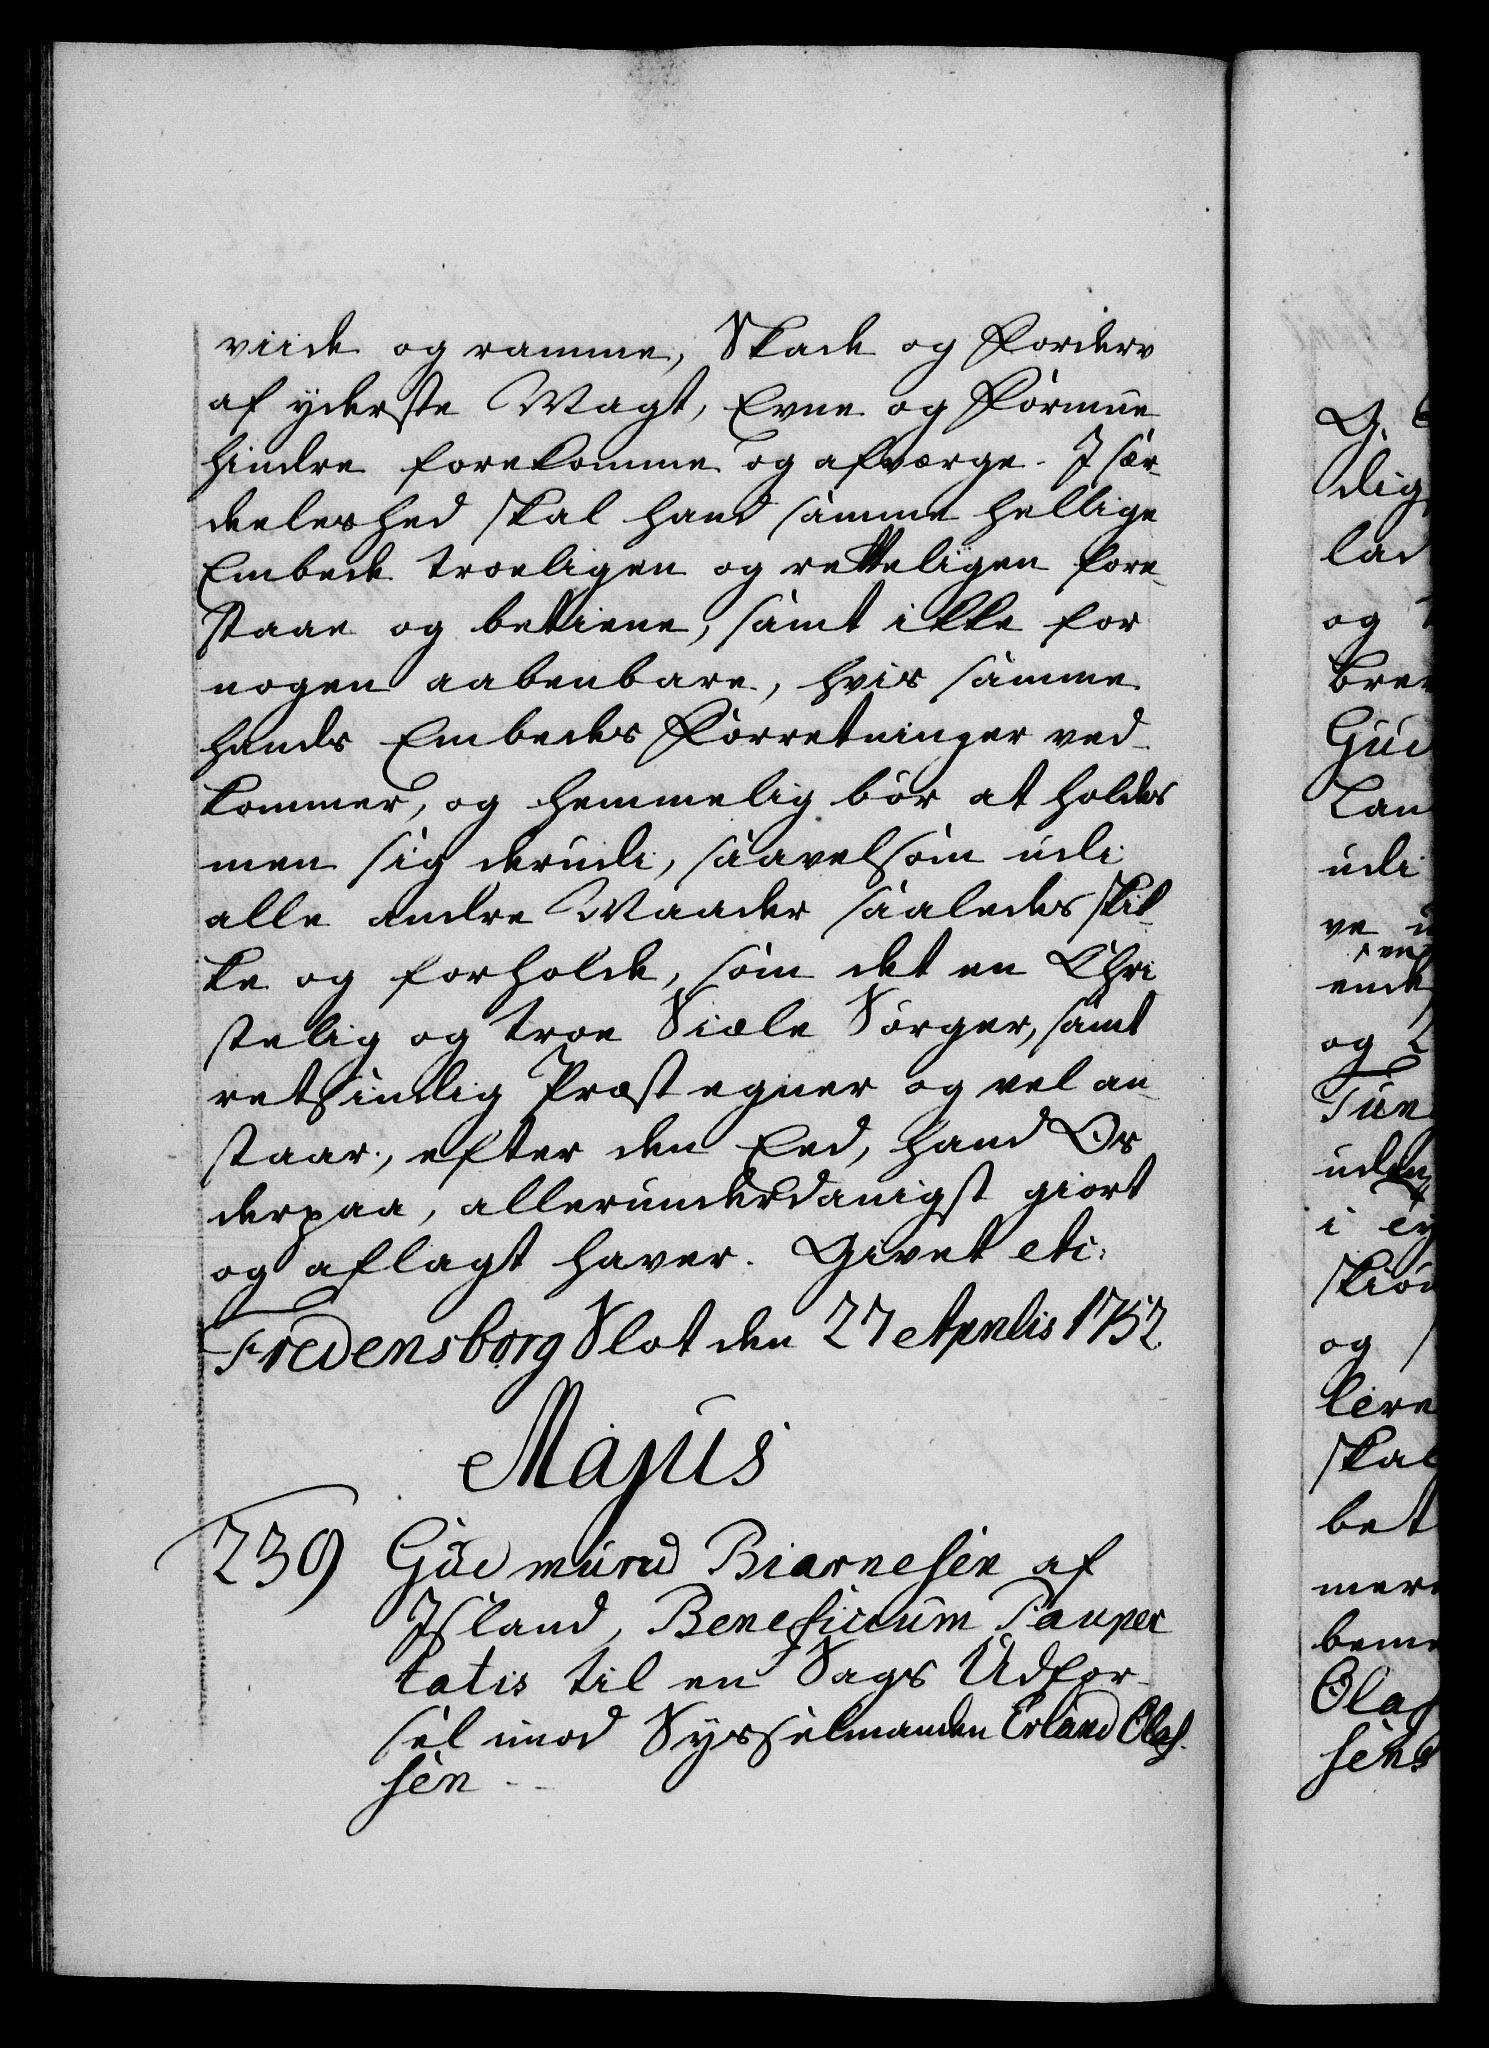 viide og ramme, Skade og Forderv
af yderste Magt, Evne og Formue
hindre forekomme og afværge. I sær-
deeleshed skal hand samme hellige
Embede troeligen og retteligen fore-
staae og betiene, samt ikke for
nogen aabenbare, hvis samme
hands Embedes Forretninger ved-
kommer, og hemmelig bör at holdes
men sig derudi, saavelsom udi
alle andre Maader saaledes skik-
ke og forholde, som det en Chri
stelig og troe Siæle Sörger, samt
retsindig Præst egner og vel an-
staar, efter den Eed, hand Os
derpaa, allerunderdanigst giort
og aflagt haver. Givet etc:
Fredensborg Slot den 27 Aprilis 1752
Majus
239 Gudmund Biarnesen af
Island, Beneficium Pauper
tatis til en Sags Udför-
sel imod Sysselmanden Erland Olaf-
sen --
G.
dig
lad
og
brev
Gud
Lan
udi
ve
ende
og
Tun
uden
i
skiö
og
lere
skal
bet
mere
beme
Olaf
sens